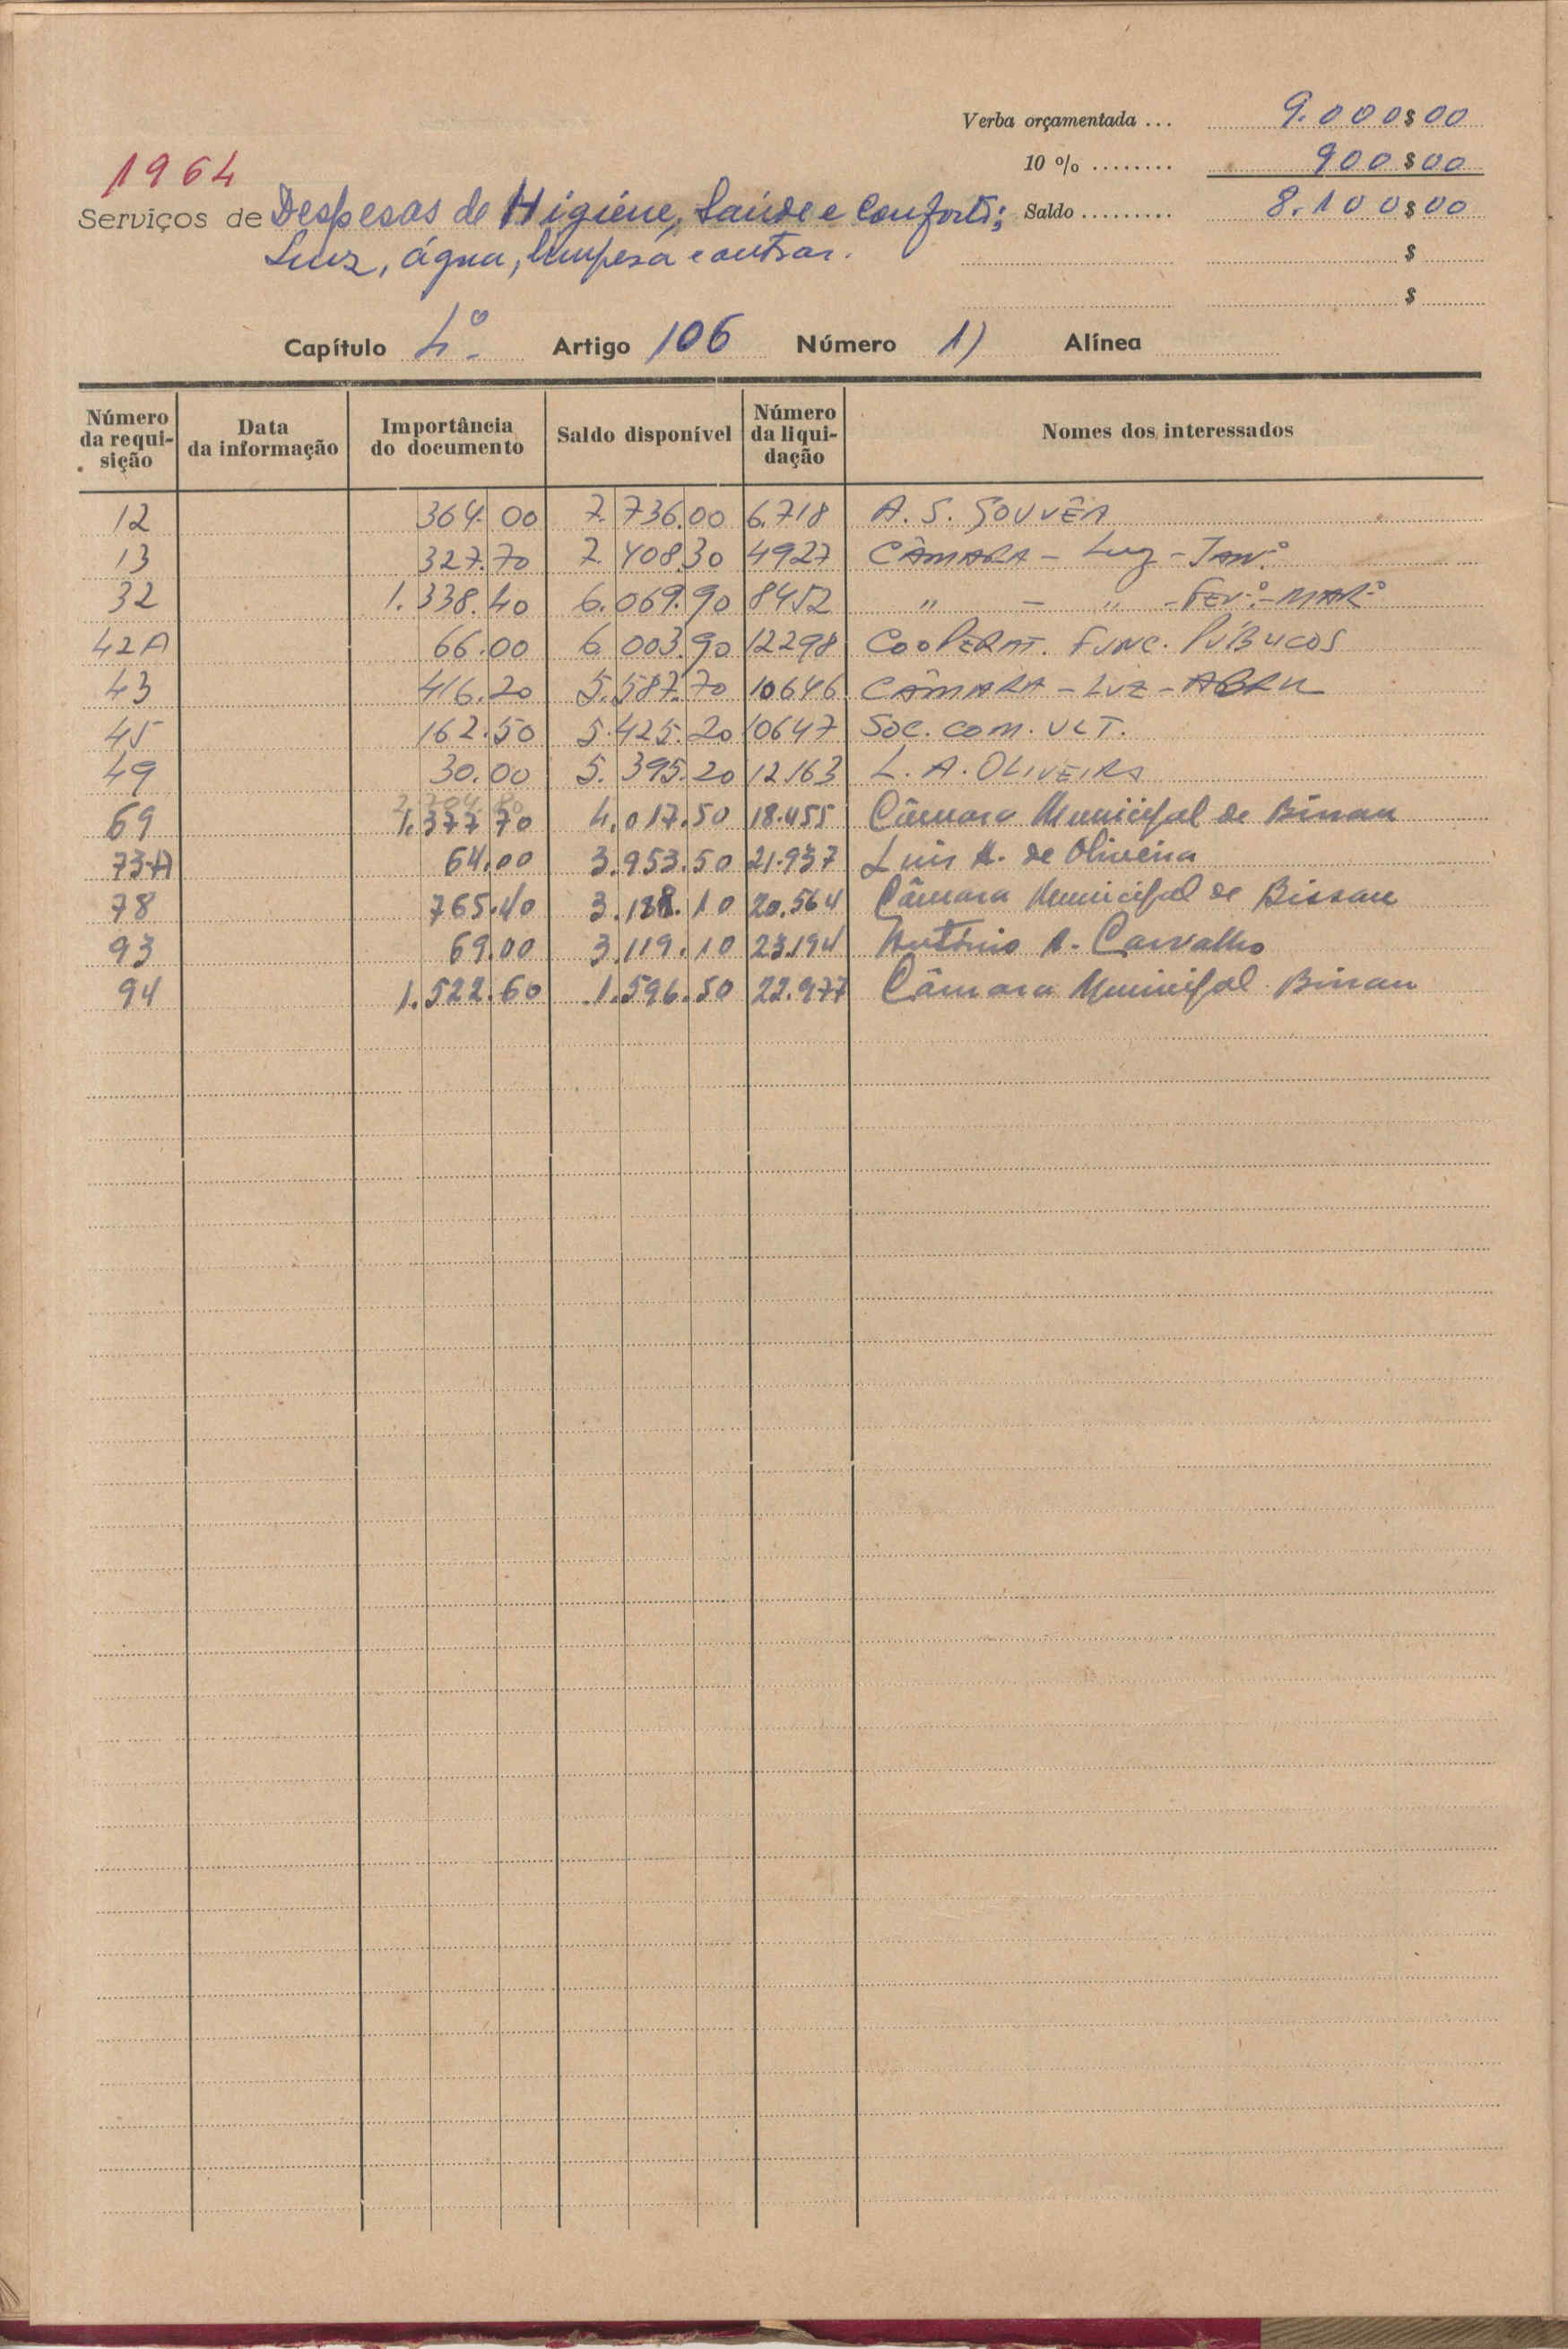 Verba orçamentada ... 9.000$00
10 % ........ 900$00
1964
Serviços de Despesas de Higiéne, Saúde e Conforto; Saldo ......... 8.100$00
Luz, água, limpesa e outras. $
$
Capítulo 4º Artigo 106 Número 1) Alínea
Número da requi-sição Data da informação Importância do documento Saldo disponível Número da liqui-dação Nomes dos interessados
12 364.00 7.736.00 6.718 A. S. GOUVÊA
13 327.70 7.408.30 4927 CÂMARA - Luz - JAN.º
32 1.338.40 6.069.90 8452 " - " - FEV.º - MAR.º
42A 66.00 6.003.90 12298 COOPERAT. FUNC. PÚBLICOS
43 416.20 5.587.70 10646 CÂMARA - LUZ - ABRIL
45 162.50 5.425.20 10647 SOC. COM. ULT.
49 30.00 5.395.20 12.163 L. A. OLIVEIRA
69 1.377.70 4.017.50 18.455 Câmara Municipal de Bissau
73-A 64.00 3.953.50 21.937 Luis A. de Oliveira
78 765.40 3.188.10 20.564 Câmara Municipal de Bissau
93 69.00 3.119.10 23.194 António A. Carvalho
94 1.522.60 1.596.50 22.977 Câmara Municipal Bissau